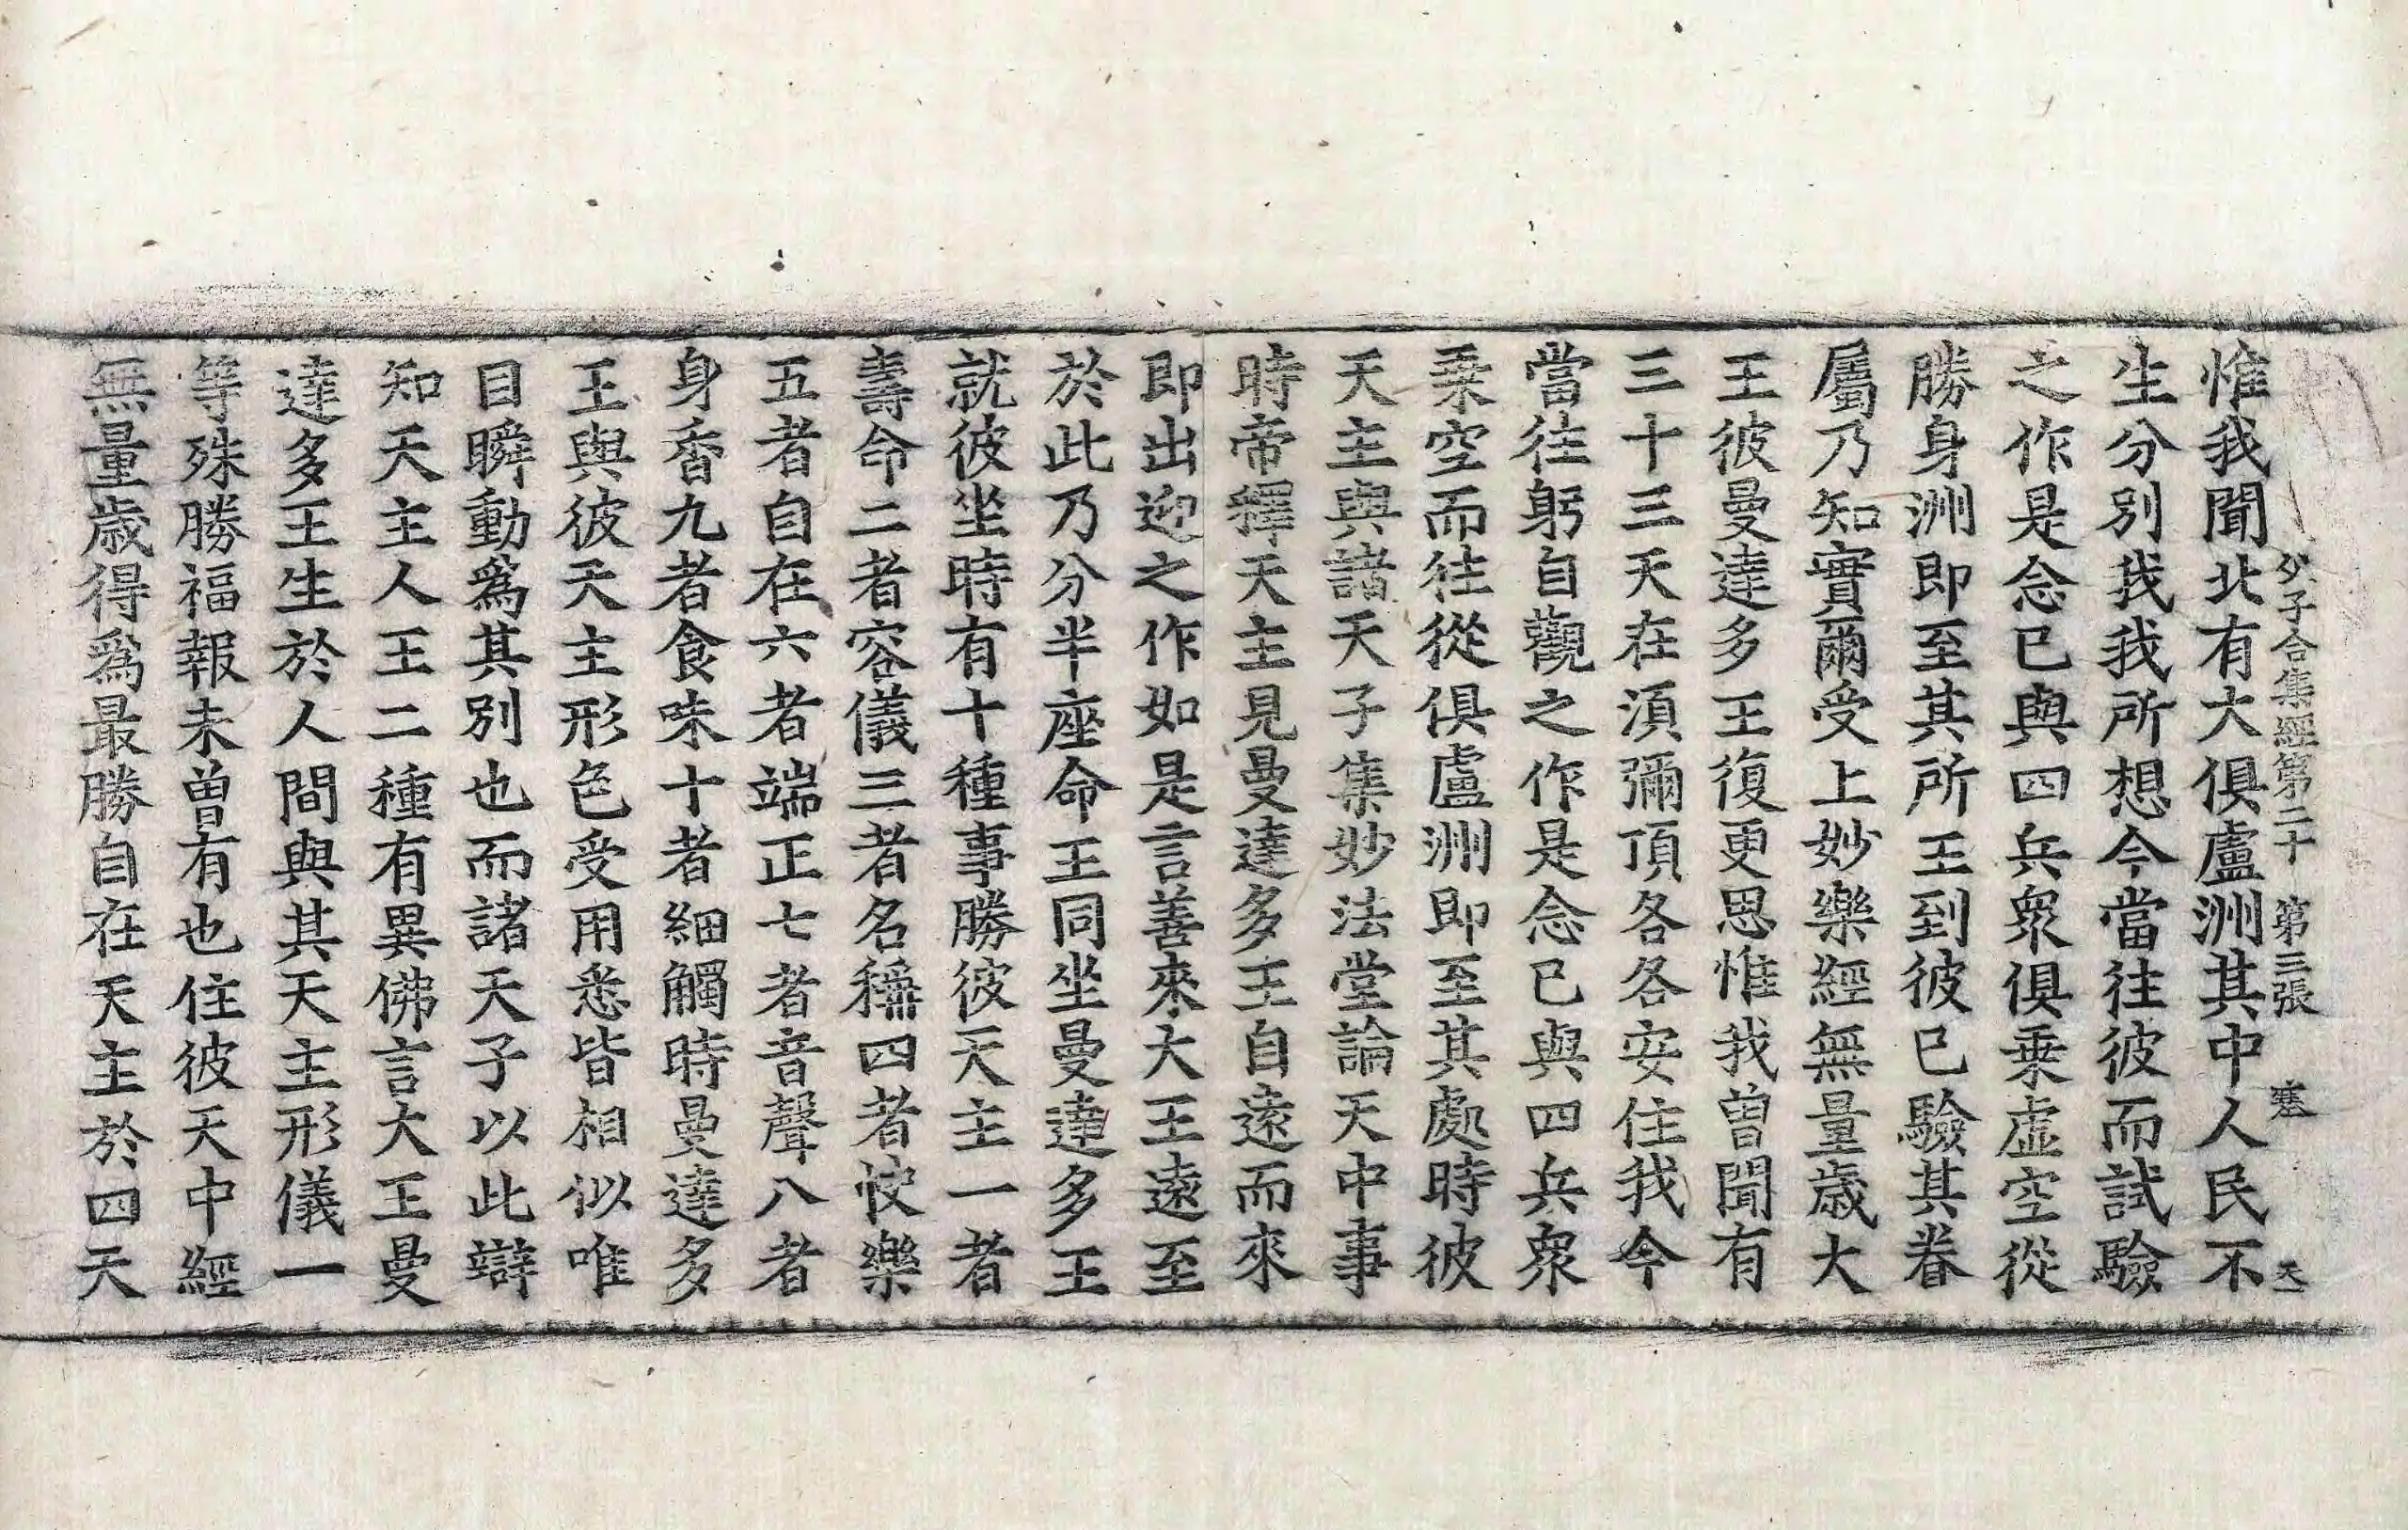 父子合集經第二十 第三張 塞 天
惟我聞北有大俱盧洲其中人民不
生分別我我所想今當往彼而試驗
之作是念已與四兵衆俱乗虛空從
勝身洲即至其所王到彼已驗其眷
屬乃知實爾受上妙樂經無量歲大
王彼曼達多王復更思惟我曾聞有
三十三天在須彌頂各各安住我今
當往躬自觀之作是念已與四兵衆
乗空而往從俱盧洲即至其處時彼
天主與諸天子集妙法堂論天中事
時帝釋天主見曼達多王自遠而來
即出迎之作如是言善來大王遠至
於此乃分半座命王同坐曼達多王
就彼坐時有十種事勝彼天主一者
壽命二者容儀三者名稱四者快樂
五者自在六者端正七者音聲八者
身香九者食味十者細觸時曼達多
王與彼天主形色受用悉皆相似唯
目瞬動爲其別也而諸天子以此辯
知天主人王二種有異佛言大王曼
達多王生於人間與其天主形儀一
等殊勝福報未曾有也住彼天中經
無量歲得爲最勝自在天主於四天